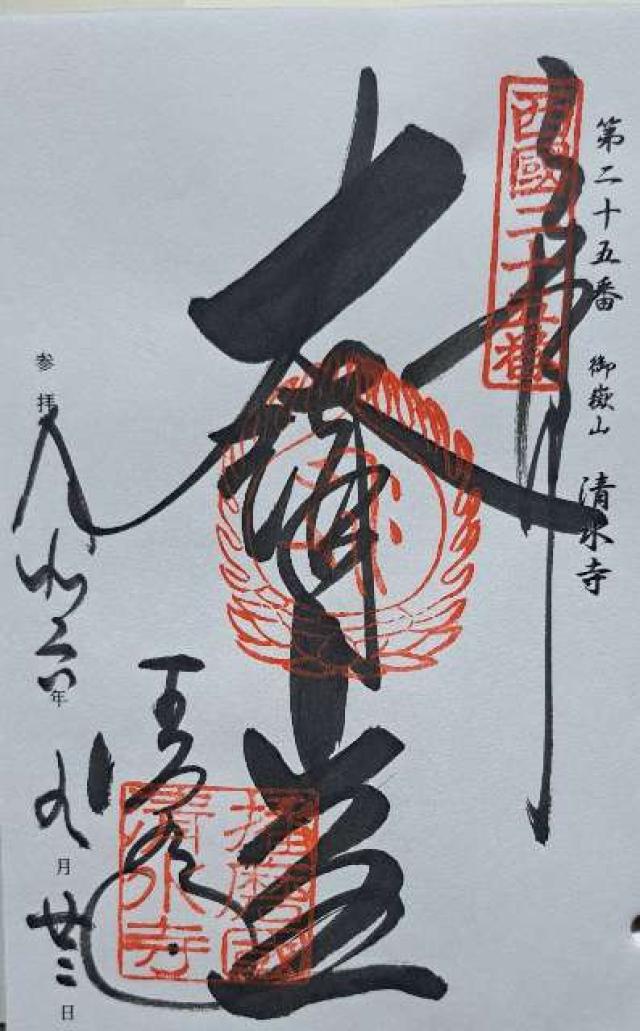 第二十五番 御嶽山 清水寺
西國二十五番
奉拝
大講堂
播磨國
清水寺
参拝 令和 年 九月廿二日